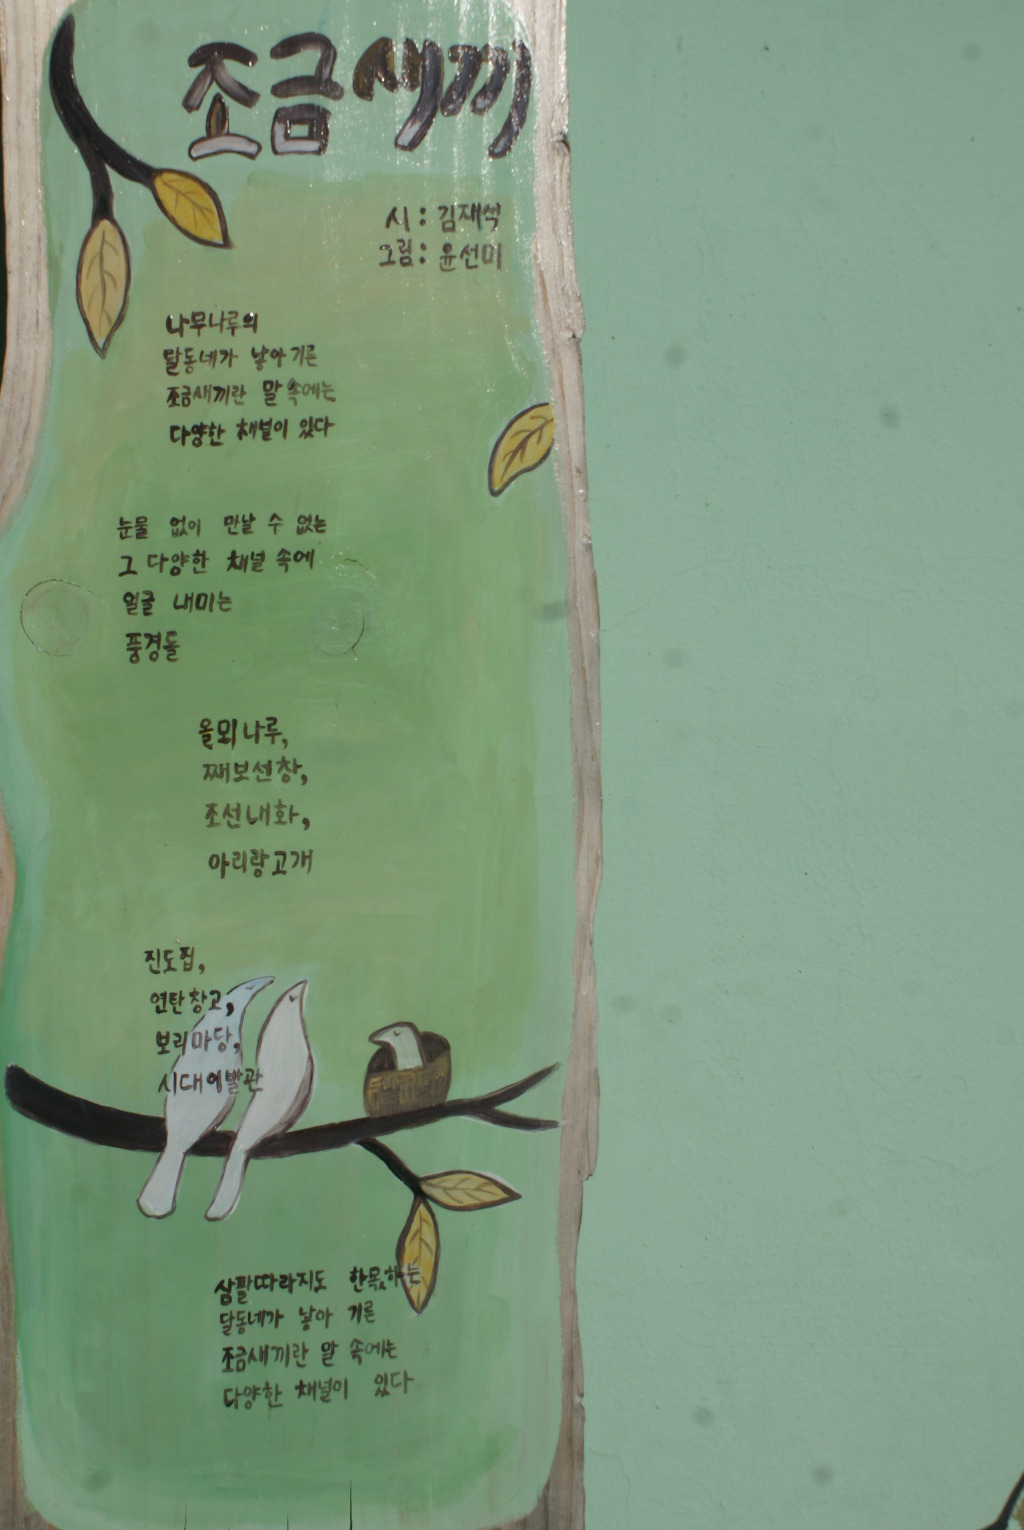 조금새끼
시 : 김재석
그림 : 윤선미
나무나루의
달동네가 낳아 기른
조금새끼란 말 속에는
다양한 채널이 있다
눈물 없이 만날 수 없는
그 다양한 채널 속에
얼굴 내미는
풍경들
올뫼나루,
째보선창,
조선내화,
아리랑고개
진도집,
연탄창고,
보리마당,
시대이발관
삼팔따라지도 한몫하는
달동네가 낳아 기른
조금새끼란 말 속에는
다양한 채널이 있다